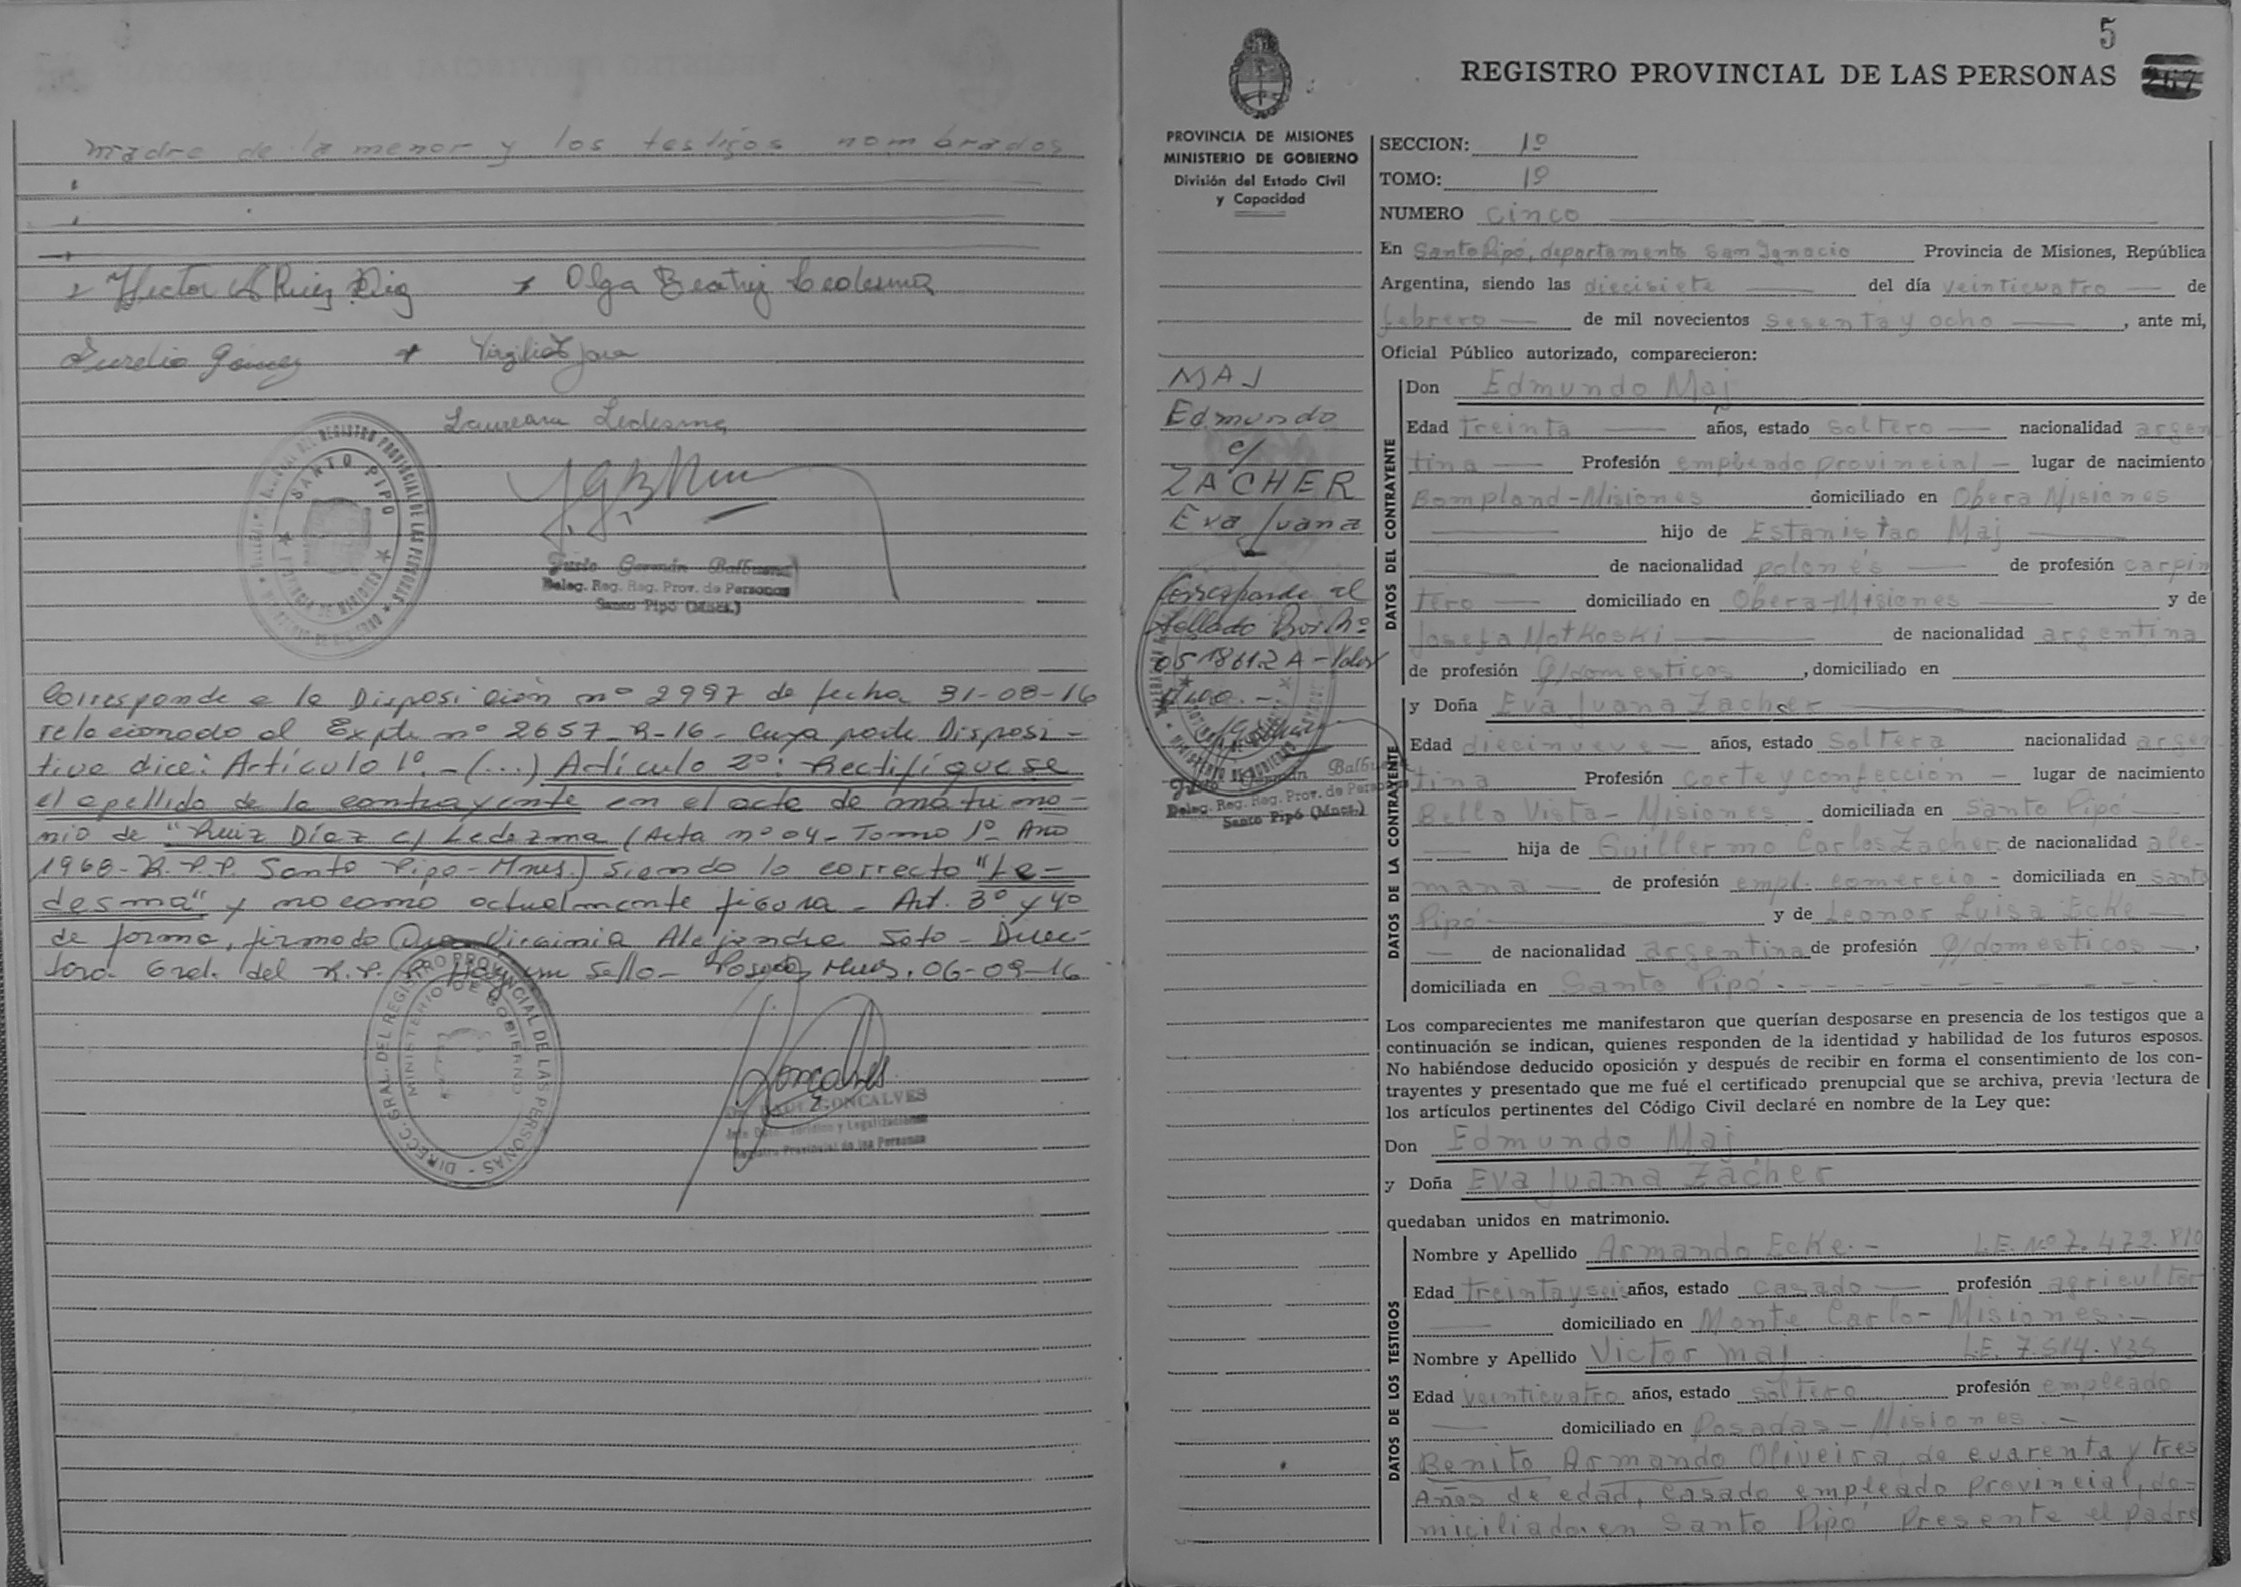 madre de la menor y los testigos nombrados
Hector A Ruiz Diaz Olga Beatriz Ledesma
Aurelio Gomez Virgilio Jara
Laureana Ledesma
SANTO PIPO
Justo Germán Balbuena
Deleg. Reg. Prov. de Personas
Santo Pipó (Mnes.)
Corresponde a la Disposición nº 2997 de fecha 31-08-16
relacionado al Expte nº 2657-R-16- Cuya parte Disposi-
tiva dice: Artículo 1º.-(...) Artículo 2º: Rectifíquese
el apellido de la contrayente en el acta de matrimo-
nio de "Ruiz Díaz c/ Ledezma (Acta nº 04- Tomo 1º- Año
1968- R.P.P. Santo Pipo-Mnes.) Siendo lo correcto "Le-
desma" y no como actualmente figura- Art. 3º y 4º
de forma, firmado Dra Virginia Alejandra Soto- Direc-
tora Gral. del R.P.P. Hay un Sello- Posadas, Mnes. 06-09-16
DIRECC. GRAL. DEL REGISTRO PROVINCIAL DE LAS PERSONAS
MINISTERIO DE GOBIERNO
GONCALVES
Registro Provincial de las Personas
5
REGISTRO PROVINCIAL DE LAS PERSONAS 267
PROVINCIA DE MISIONES
MINISTERIO DE GOBIERNO
División del Estado Civil
y Capacidad
MAJ
Edmundo
c/
ZACHER
Eva Juana
Corresponde al
Sellado
0518612 A - Valor
Justo Germán Balbuena
Deleg. Reg. Prov. de Personas
Santo Pipó (Mnes.)
SECCION: 1º
TOMO: 1º
NUMERO cinco
En Santo Pipó, departamento San Ignacio Provincia de Misiones, República
Argentina, siendo las diecisiete del día veinticuatro de
febrero de mil novecientos sesenta y ocho , ante mi,
Oficial Público autorizado, comparecieron:
DATOS DEL CONTRAYENTE
Don Edmundo Maj
Edad treinta años, estado soltero nacionalidad argen
tina Profesión empleado provincial lugar de nacimiento
Bompland-Misiones domiciliado en Obera Misiones
hijo de Estanislao Maj
de nacionalidad polonés de profesión carpin
tero domiciliado en Obera-Misiones y de
Josefa Motkoski de nacionalidad argentina
de profesión Q/domesticos , domiciliado en
DATOS DE LA CONTRAYENTE
y Doña Eva Juana Zacher
Edad diecinueve años, estado soltera nacionalidad argen
tina Profesión corte y confección lugar de nacimiento
Bella Vista-Misiones domiciliada en Santo Pipó
hija de Guillermo Carlos Zacher de nacionalidad ale-
mana de profesión empl. comercio - domiciliada en Santo
Pipó y de Leonor Luisa Ecke
de nacionalidad argentina de profesión Q/domesticos ,
domiciliada en Santo Pipó.
Los comparecientes me manifestaron que querían desposarse en presencia de los testigos que a
continuación se indican, quienes responden de la identidad y habilidad de los futuros esposos.
No habiéndose deducido oposición y después de recibir en forma el consentimiento de los con-
trayentes y presentado que me fué el certificado prenupcial que se archiva, previa lectura de
los artículos pertinentes del Código Civil declaré en nombre de la Ley que:
Don Edmundo Maj
y Doña Eva Juana Zacher
quedaban unidos en matrimonio.
DATOS DE LOS TESTIGOS
Nombre y Apellido Armando Ecke.- L.E. Nº 7.472.810
Edad treinta y seis años, estado casado profesión agricultor
domiciliado en Monte Carlo-Misiones.-
Nombre y Apellido Victor maj L.E. 7.514.835
Edad veinticuatro años, estado soltero profesión empleado
domiciliado en Posadas-Misiones.-
Benito Armando Oliveira, de cuarenta y tres
años de edad, casado empleado provincial, do-
miciliado en Santo Pipó Presente el padre